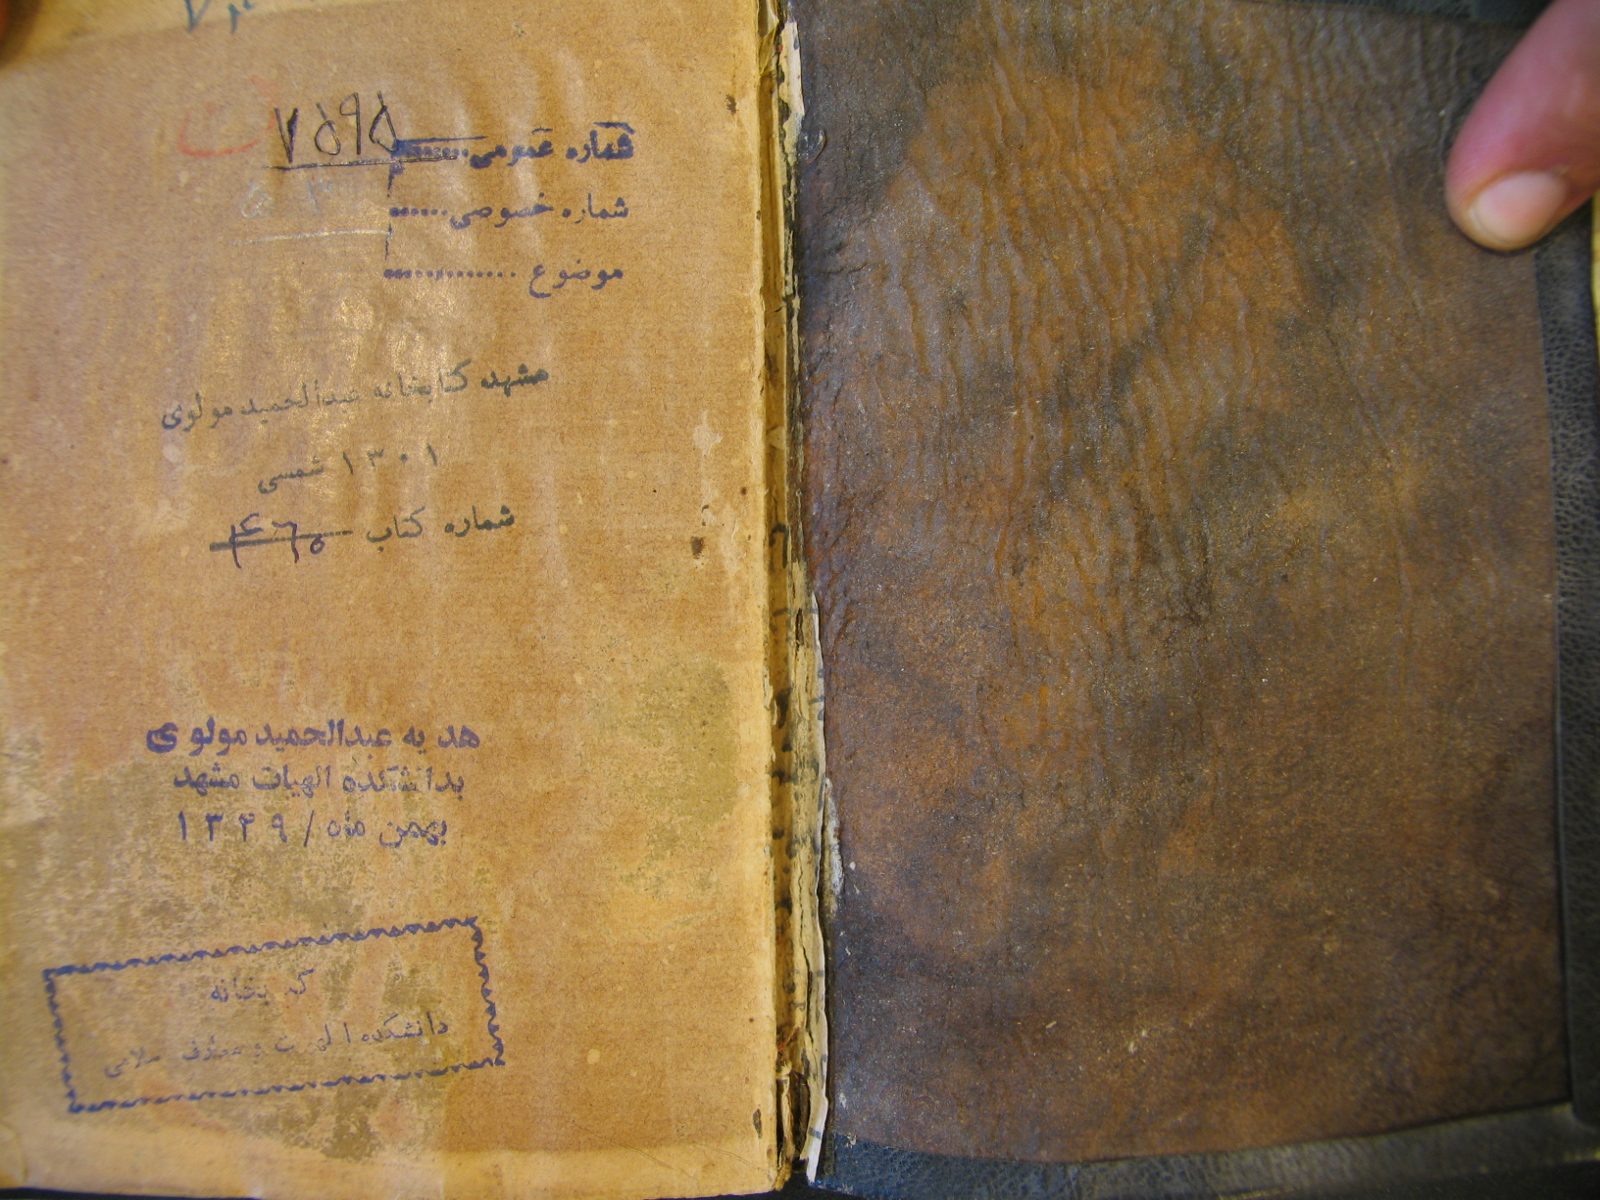 شماره عمومی ۷۵۹۵
شماره خصوصی
موضوع
مشهد کتابخانه عبدالحمید مولوی
۱۳۰۱ شمسی
شماره کتاب
هدیه عبدالحمید مولوی
بدانشکده الهیات مشهد
بهمن ماه / ۱۳۴۹
کتابخانه
دانشکده الهیات و معارف اسلامی